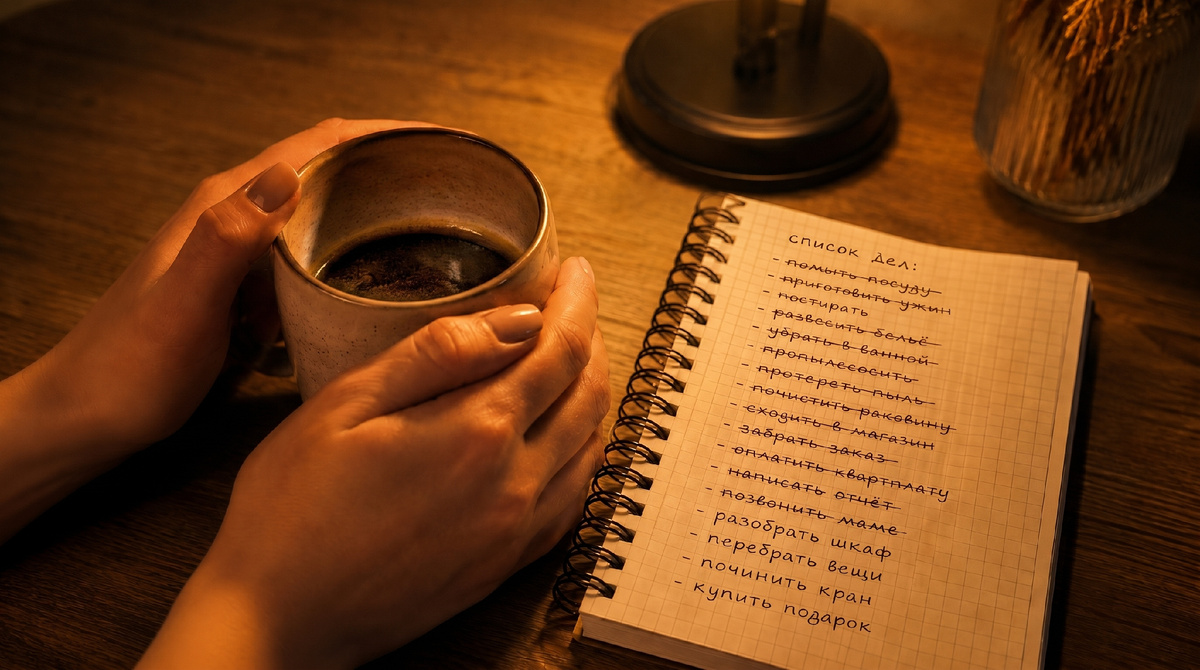 список дел:
- помыть посуду
- приготовить ужин
- постирать
- развесить бельё
- убрать в ванной
- пропылесосить
- протереть пыль
- почистить раковину
- сходить в магазин
- забрать заказ
- оплатить квартплату
- написать отчёт
- позвонить маме
- разобрать шкаф
- перебрать вещи
- починить кран
- купить подарок